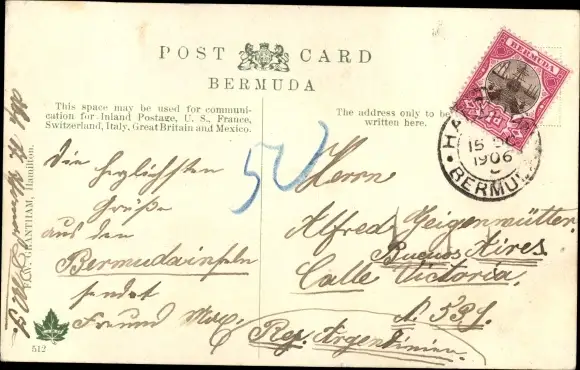 POST CARD
BERMUDA
This space may be used for communi-
cation for Inland Postage, U. S., France,
Switzerland, Italy, Great Britain and Mexico.
The address only to be
written here.
BERMUDA
15
1906
BERMUDA
50
Die herzlichsten
Grüße
aus den
Bermudainseln
sendet
Freund Max.
Herrn
Alfred Geigenmütter.
Buenos Aires.
Calle Victoria.
Rep. Argentinien.
GRANTHAM, Hamilton.
512